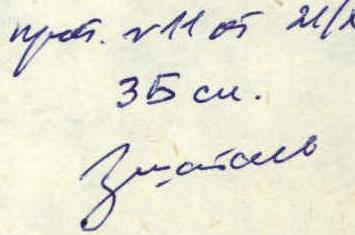 прот. №11 от 21/
35 см.